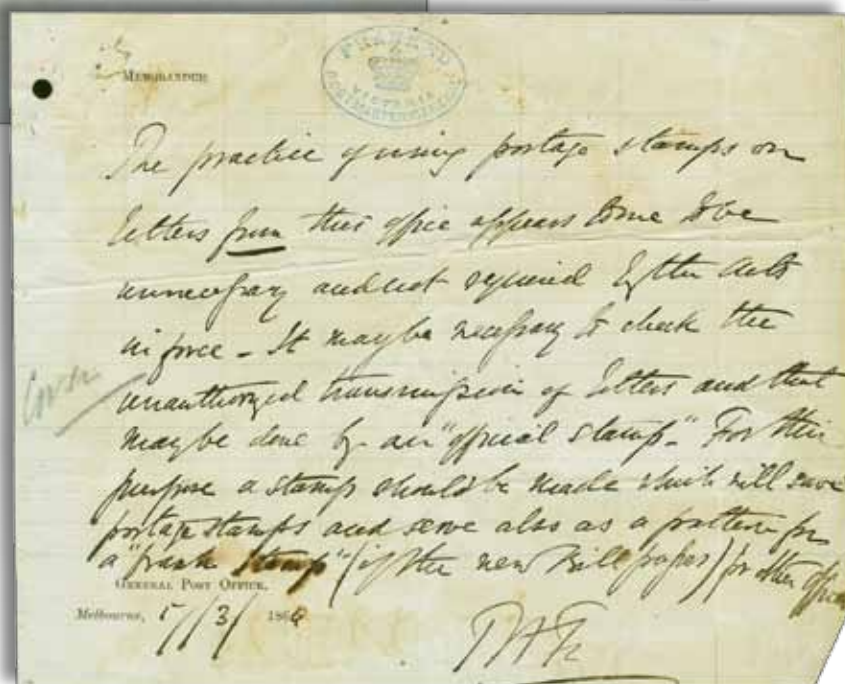 FRANKED
VICTORIA
POSTMASTER GENERAL
MEMORANDUM
The practice of using portage stamps on
letters from this office appears to me to be
unnecessary and not required by the Acts
in force - It may be necessary to check the
unauthorized transmission of letters and that
may be done by an "official stamp." For this
purpose a stamp should be made which will save
portage stamps and serve also as a pattern for
a "frank stamp" (if the new Bill passes) for other offices
GENERAL POST OFFICE,
Melbourne, 5/3/ 186